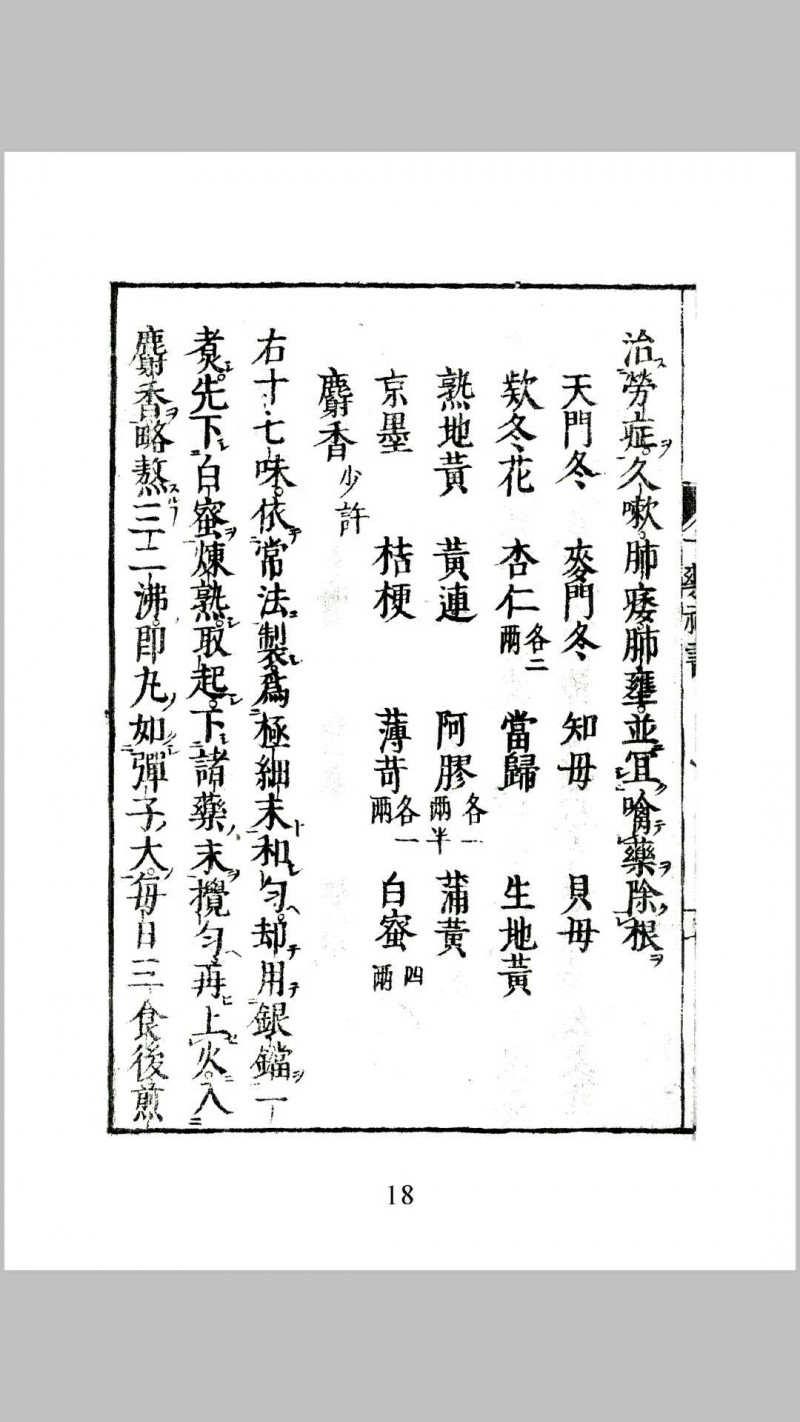 治勞症久嗽肺痿肺壅並冝噙藥除根
天門冬 麥門冬 知母 貝母
款冬花 杏仁各二兩 當歸 生地黃
熟地黃 黃連 阿膠各一兩半 蒲黃
京墨 桔梗 薄苛各一兩 白蜜四兩
麝香少許
右十七味依常法製爲極細末和勻却用銀鐺一
煑先下白蜜煉熟取起下諸藥末攪勻再上火入
麝香略熬三二沸即丸如彈子大每日三食後煎
18